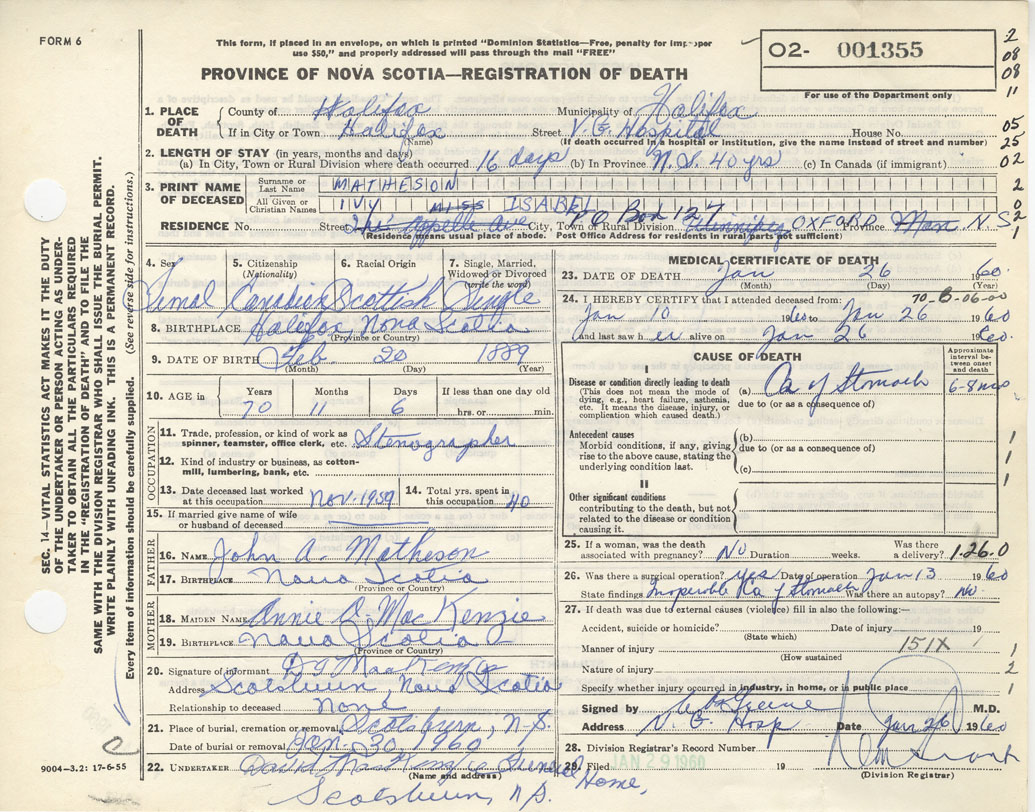 FORM 6
This form, if placed in an envelope, on which is printed "Dominion Statistics—Free, penalty for improper
use $50," and properly addressed will pass through the mail "FREE"
PROVINCE OF NOVA SCOTIA—REGISTRATION OF DEATH
O2- 001355
For use of the Department only
2
08
08
11
05
25
02
2
0
2
1
1. PLACE OF DEATH County of Halifax Municipality of Halifax
If in City or Town Halifax Street V.G. Hospital House No.
(Name) (If death occurred in a hospital or institution, give the name instead of street and number)
2. LENGTH OF STAY (in years, months and days)
(a) In City, Town or Rural Division where death occurred 16 days (b) In Province N.S. 40 yrs (c) In Canada (if immigrant)
3. PRINT NAME OF DECEASED Surname or Last Name MATHESON
All Given or Christian Names IVY MISS ISABEL
P O Box 127
RESIDENCE No. Street Qu'Appelle Ave City, Town or Rural Division Winnipeg OXFORD Province Man N.S.
(Residence means usual place of abode. Post Office Address for residents in rural parts not sufficient)
4. Sex 5. Citizenship (Nationality) 6. Racial Origin 7. Single, Married, Widowed or Divorced (write the word)
Femal Canadian Scottish Single
8. BIRTHPLACE Halifax, Nova Scotia
(Province or Country)
9. DATE OF BIRTH Feb 20 1889
(Month) (Day) (Year)
10. AGE in Years Months Days If less than one day old
70 11 6 hrs. or min.
OCCUPATION
11. Trade, profession, or kind of work as spinner, teamster, office clerk, etc. Stenographer
12. Kind of industry or business, as cotton-mill, lumbering, bank, etc.
13. Date deceased last worked at this occupation Nov. 1959 14. Total yrs. spent in this occupation 40
15. If married give name of wife or husband of deceased
FATHER
16. NAME John A. Matheson
17. BIRTHPLACE Nova Scotia
(Province or Country)
MOTHER
18. MAIDEN NAME Annie O MacKenzie
19. BIRTHPLACE Nova Scotia
(Province or Country)
20. Signature of informant D G MacKenzie
Address Scotsburn, Nova Scotia
Relationship to deceased None
21. Place of burial, cremation or removal Scotsburn, N.S.
Date of burial or removal Jan. 30, 1960
22. UNDERTAKER David MacKenzie Funeral Home,
(Name and address)
Scotsburn, N.S.
9004-3.2: 17-6-55
MEDICAL CERTIFICATE OF DEATH
23. DATE OF DEATH Jan 26 1960
(Month) (Day) (Year)
24. I HEREBY CERTIFY that I attended deceased from: 70-B-06-00
Jan 10 1960 to Jan 26 1960
and last saw h er alive on Jan 26 1960.
CAUSE OF DEATH
Approximate interval between onset and death
I
Disease or condition directly leading to death (a) Ca of Stomach 6-8 mos
(This does not mean the mode of dying, e.g., heart failure, asthenia, etc. It means the disease, injury, or complication which caused death.)
due to (or as a consequence of)
Antecedent causes
Morbid conditions, if any, giving rise to the above cause, stating the underlying condition last.
(b)
due to (or as a consequence of)
(c)
II
Other significant conditions contributing to the death, but not related to the disease or condition causing it.
1
1
1
25. If a woman, was the death associated with pregnancy? No Duration weeks. Was there a delivery? 126.0
26. Was there a surgical operation? yes Date of operation Jan 13 1960
State findings Inoperable Ca of Stomach Was there an autopsy? No.
27. If death was due to external causes (violence) fill in also the following:—
Accident, suicide or homicide? Date of injury 19
(State which)
Manner of injury 151X
(How sustained
Nature of injury
Specify whether injury occurred in industry, in home, or in public place
1
2
1
Signed by Greene M.D.
Address V. G. Hosp Date Jan 26 1960
28. Division Registrar's Record Number
29. Filed JAN 29 1960 19
(Division Registrar)
SEC. 14—VITAL STATISTICS ACT MAKES IT THE DUTY
OF THE UNDERTAKER OR PERSON ACTING AS UNDERTAKER
TO OBTAIN ALL THE PARTICULARS REQUIRED
IN THE "REGISTRATION OF DEATH" AND FILE THE
SAME WITH THE DIVISION REGISTRAR WHO SHALL ISSUE THE BURIAL PERMIT.
WRITE PLAINLY WITH UNFADING INK. THIS IS A PERMANENT RECORD.
Every item of information should be carefully supplied. (See reverse side for instructions.)